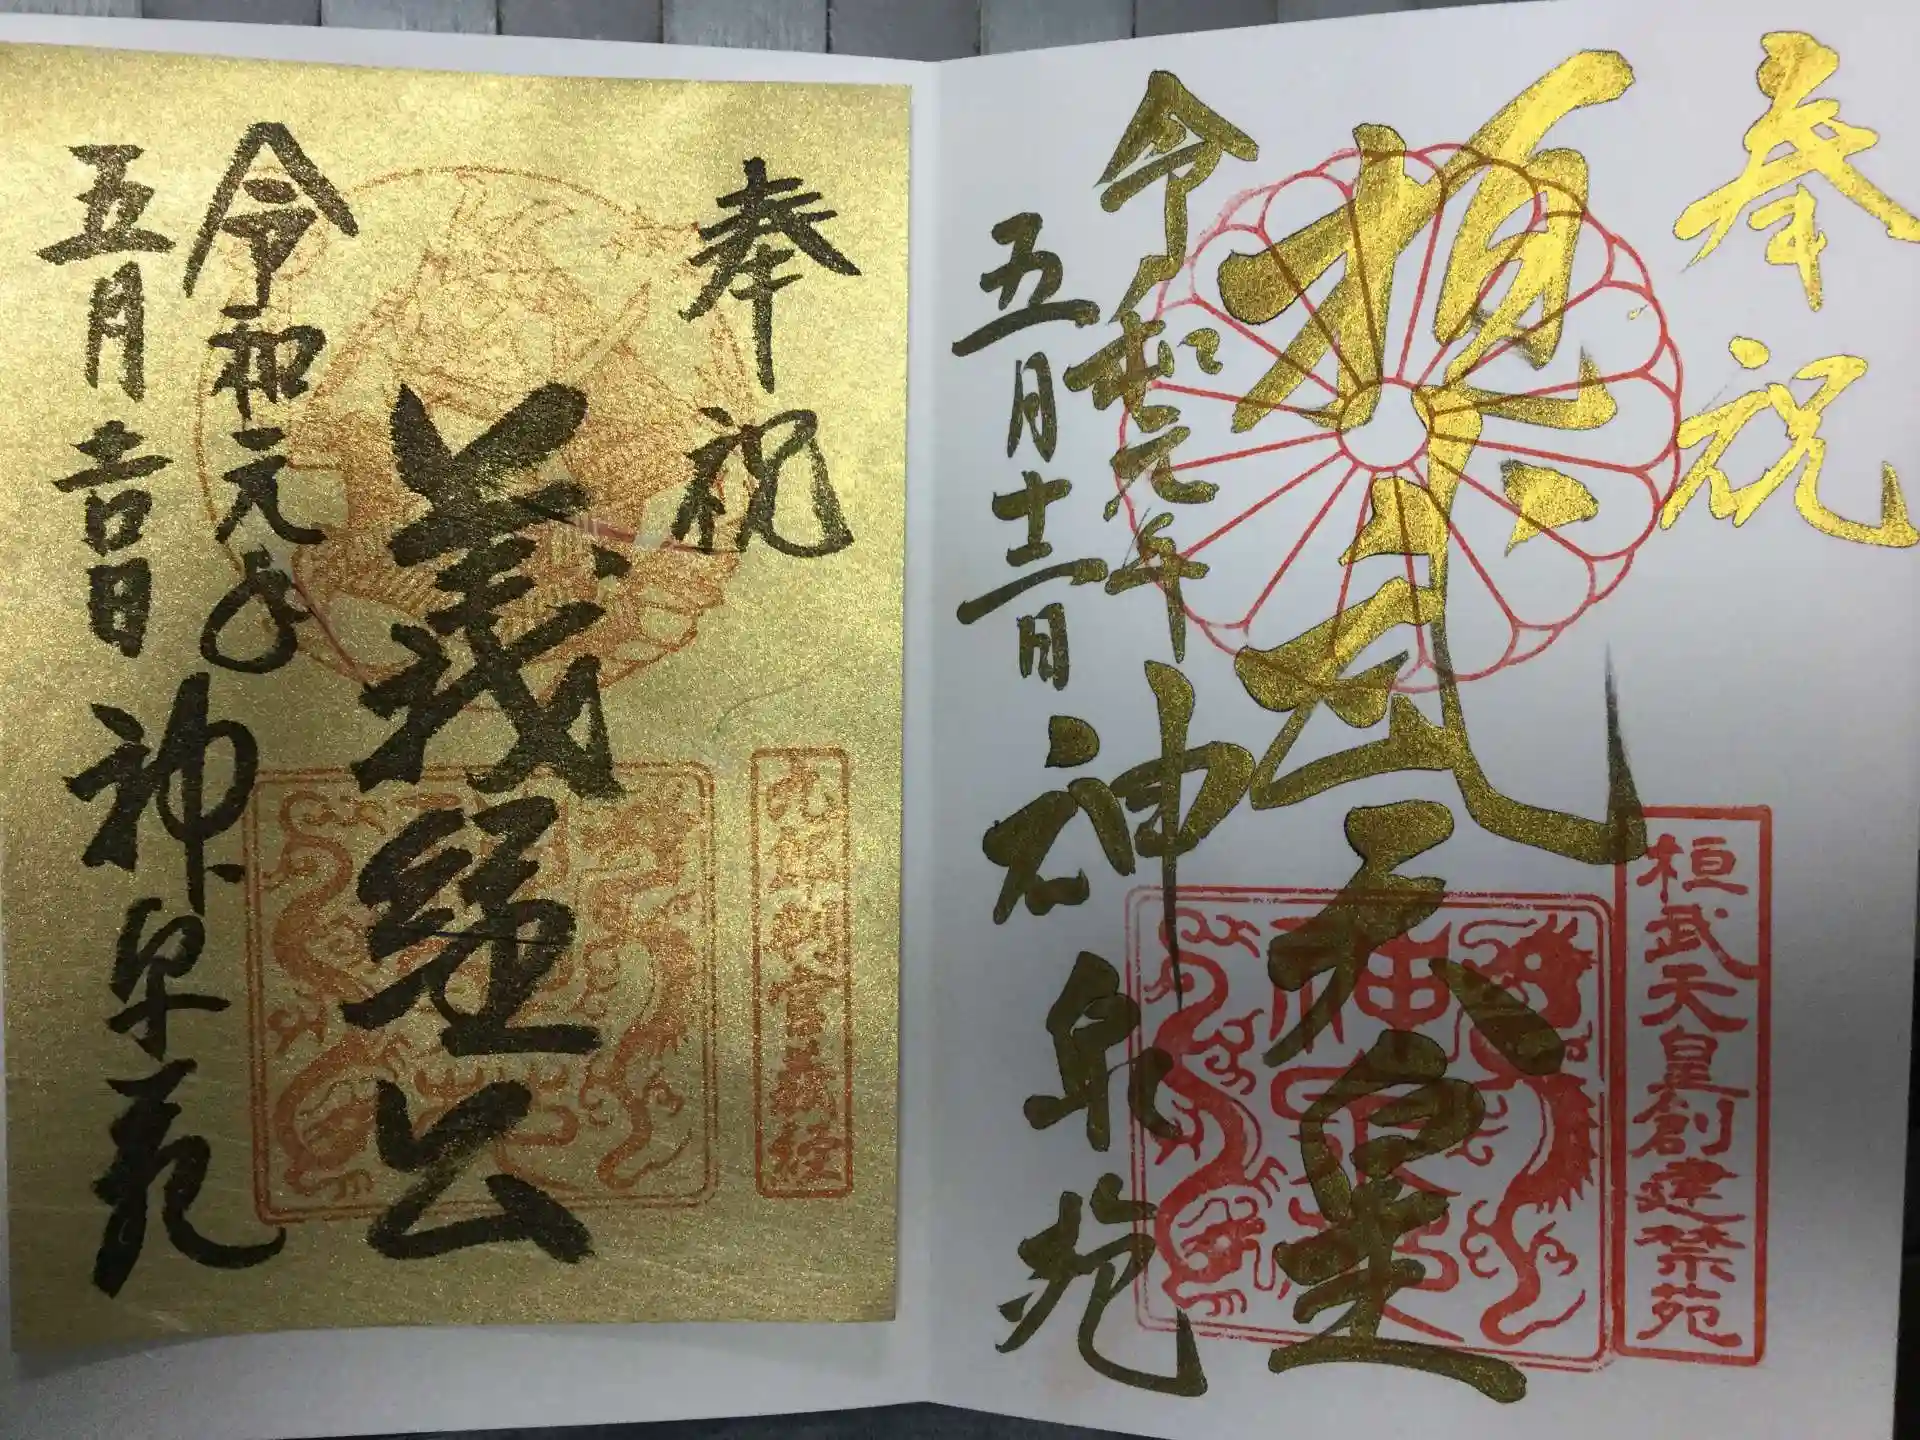 奉祝
桓武天皇
令和元年
五月十二日
神泉苑
桓武天皇創建禁苑
奉祝
義経公
令和元年
五月吉日
神泉苑
九郎判官義経